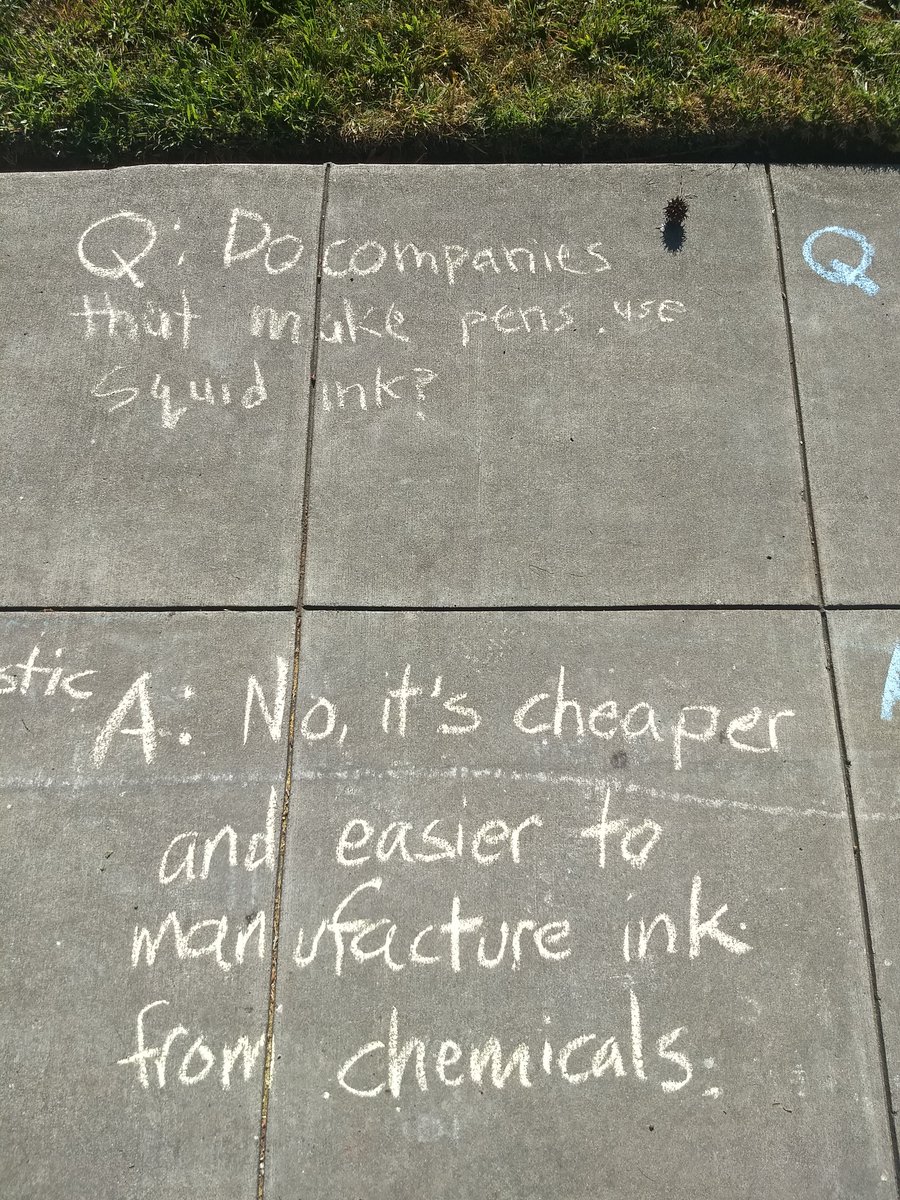 Q: Do companies
that make pens use
squid ink?
Q
stic
A: No, it's cheaper
and easier to
manufacture ink
from chemicals.